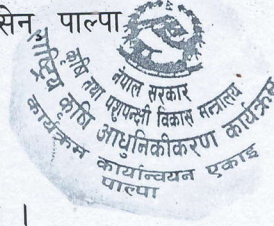 सेन पाल्पा
नेपाल सरकार
कृषि तथा पशुपन्छी विकास मन्त्रालय
राष्ट्रिय कृषि आधुनिकीकरण कार्यक्रम
कार्यक्रम कार्यान्वयन एकाइ
पाल्पा
।